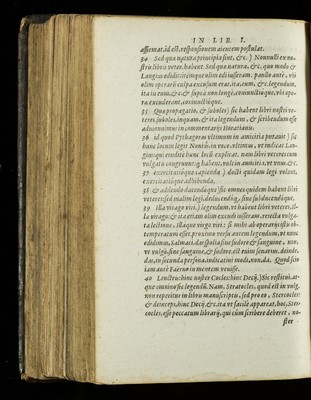 IN LIB. I.
assiemat.id est.responsionem aiencem postulat.
34 Sed qua natura principia sint, &c.) Nonnulli ex no-
stris libris veter. habent. Sed qua natura. &c. quo modo &
Langius edidit: itemque olim edi iusseram. paullo ante, vii
olim operarij culpa excusum erat, ita, cum, &c. legendum,
ita iu eum, &c & supra non longè, coniunctioque, vbi ope-
ra excuderant, coniunctióque.
35 Qua propagatio, & suboles) sic habent libri nostri ve-
teres, suboles, inquam. & ita legendum, & scribendum esse
admonuimus in commentarijs Horatianis.
36 id quod Pythagoras vltimum in amicitia putauit) sic
hunc locum legit Nonius in voce. vltimus, vt indicat Lan-
giusque eruditè hunc locū explicat. nam libri veteres cum
vulgatis congruunt. ij habent, volt in amicitijs. vt vnus &c.
37 exercitatióque capienda) docti quidam legi volunt,
exercitatióque adhibenda.
38 & adilendo ducendáque) sic omnes quidem habent libri
veteres: sed malim legi, deducendóq;, siue subducendóque.
39 Illa virago viri.) legendum, vt habent libri veteres. il-
la virago: & ita etiam olim excudi iusseram, retecta vulga-
ta lectione, illaque virgo viri: si mihi ab operarijs istis ob-
temperatum esset. proximo versu autem legendum, vt nunc
edidimus, Salmaci. da spolia sine sudore & sanguine. non,
vt vulgò, sine sanguine, & sudore. est enim senarius. deinde,
das, in secunda persona, indicatiui modi, non, da. Quod scio
iam ante Faërno in mentem venisse.
40 Iam struc hinc noster Cocles: hinc Decij.) Sic restitui. at-
que omnino sic legendū. Nam, Stratocles, quod est in vulg.
non reperitur in libris manuscriptis, sed pro eo, Stercocles:
& deinceps, hinc Decij, &c. ita vt facilè appareat, hoc, Ster-
cocles, esse peccatum librarij, qui cùm scribere deberet, no-
ster